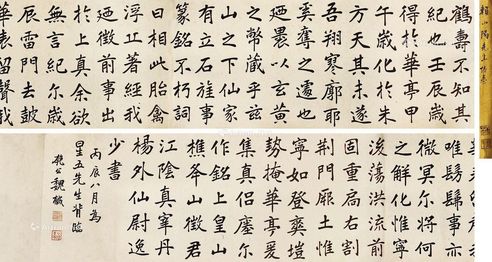 鶴壽不知其
紀也壬辰歲
得於華亭甲
午歲化於朱
方天其未遂
吾翔寥廓耶
奚奪之遽也
廼裹以玄黃
之幣藏乎茲
山之下仙家
有立石旌事
篆銘不朽詞
曰相此胎禽
浮丘著經我
廼徵前事出
於上真余欲
無言紀爾歲
辰雷門去鼓
華表留聲我
唯髣髴事亦
微冥爾將何
之解化惟寧
後蕩洪流前
固重扃右割
荊門厞土惟
寧如登爽塏
勢掩華亭爰
集真侶瘞爾
作銘上皇山
樵岑山徵君
江陰真宰丹
楊外仙尉逸
少書
丙辰八月為
星五先生背臨